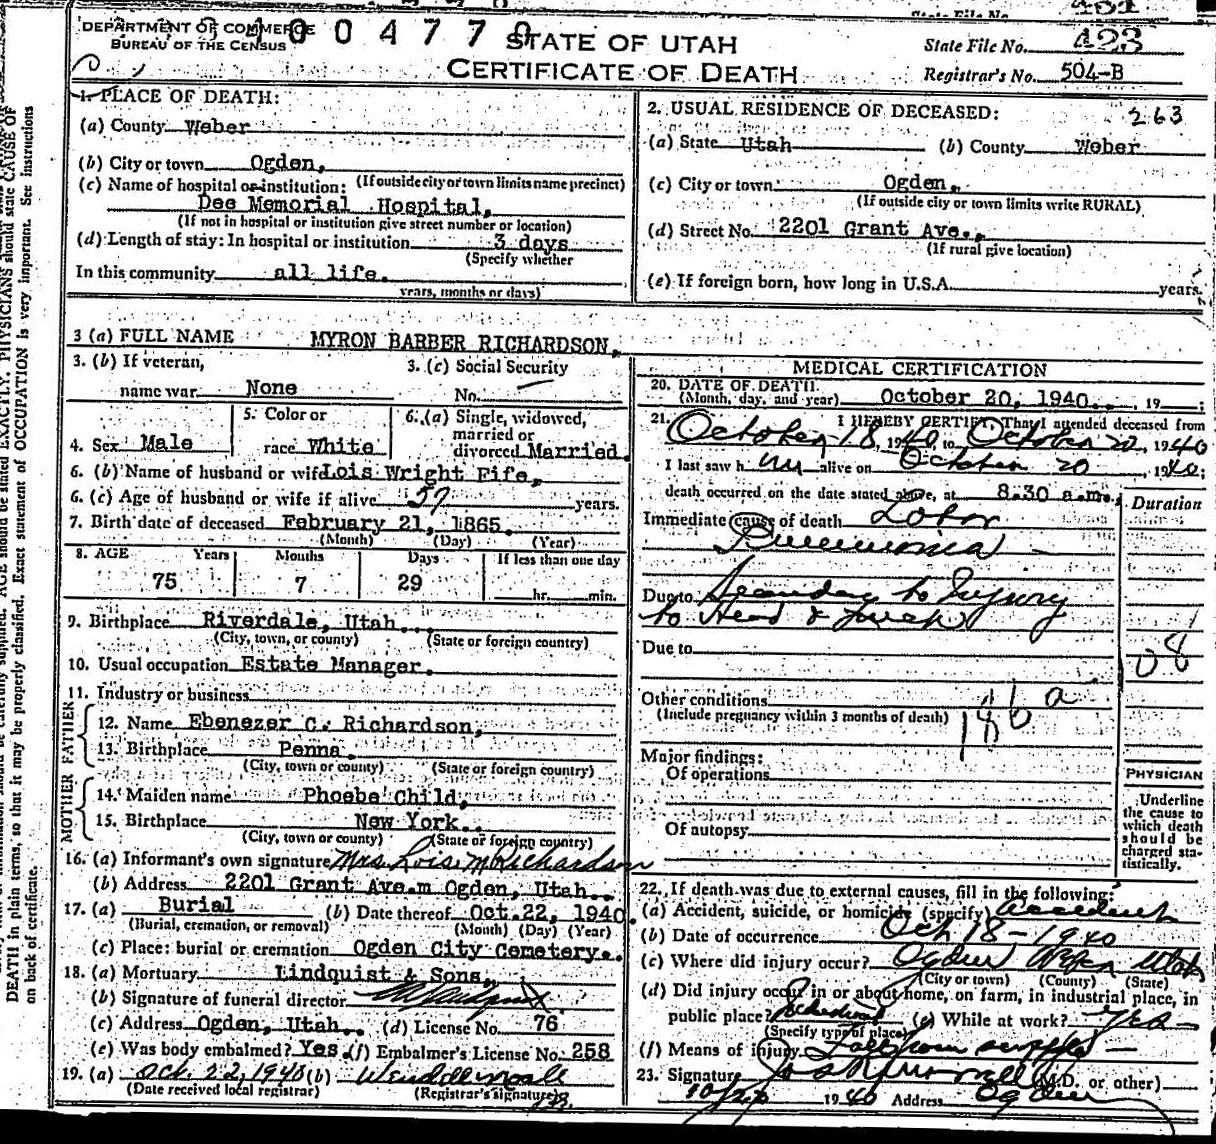 DEPARTMENT OF COMMERCE
BUREAU OF THE CENSUS
0 0 4 7 7 0
STATE OF UTAH
CERTIFICATE OF DEATH
State File No. 423
Registrar's No. 504-B
1. PLACE OF DEATH:
(a) County Weber
(b) City or town Ogden,
(If outside city or town limits name precinct)
(c) Name of hospital or institution:
Dee Memorial Hospital,
(If not in hospital or institution give street number or location)
(d) Length of stay: In hospital or institution 3 days
(Specify whether
In this community all life.
years, months or days)
2. USUAL RESIDENCE OF DECEASED:
263
(a) State Utah (b) County Weber
(c) City or town Ogden,
(If outside city or town limits write RURAL)
(d) Street No. 2201 Grant Ave.,
(If rural give location)
(e) If foreign born, how long in U.S.A. years.
3 (a) FULL NAME MYRON BARBER RICHARDSON,
3. (b) If veteran,
name war None
3. (c) Social Security
No.
4. Sex Male
5. Color or
race White
6. (a) Single, widowed,
married or
divorced Married.
6. (b) Name of husband or wife Lois Wright Fife,
6. (c) Age of husband or wife if alive 57 years.
7. Birth date of deceased February 21, 1865.
(Month) (Day) (Year)
8. AGE Years Months Days If less than one day
75 7 29 hr. min.
9. Birthplace Riverdale, Utah.
(City, town, or county) (State or foreign country)
10. Usual occupation Estate Manager.
11. Industry or business
FATHER
12. Name Ebenezer C. Richardson,
13. Birthplace Penna.
(City, town or county) (State or foreign country)
MOTHER
14. Maiden name Phoebe Child,
15. Birthplace New York.
(City, town or county) (State or foreign country)
16. (a) Informant's own signature Mrs. Lois M Richardson
(b) Address 2201 Grant Ave.m Ogden, Utah.
17. (a) Burial (b) Date thereof Oct. 22, 1940.
(Burial, cremation, or removal) (Month) (Day) (Year)
(c) Place: burial or cremation Ogden City Cemetery.
18. (a) Mortuary Lindquist & Sons,
(b) Signature of funeral director
(c) Address Ogden, Utah. (d) License No. 76
(e) Was body embalmed? Yes. (f) Embalmer's License No. 258
19. (a) Oct. 22, 1940 (b)
(Date received local registrar) (Registrar's signature)
MEDICAL CERTIFICATION
20. DATE OF DEATH
(Month, day, and year) October 20, 1940. , 19 ;
21. I HEREBY CERTIFY, That I attended deceased from
October 18, 1940 to October 20, 1940
I last saw h im alive on October 20 1940;
death occurred on the date stated above, at 8:30 a.m.
Duration
Immediate cause of death Lobar
Pneumonia
Due to Secondary to Injury
to Head &
Due to
108
Other conditions
(Include pregnancy within 3 months of death)
186 a
Major findings:
Of operations
Of autopsy
PHYSICIAN
Underline
the cause to
which death
should be
charged sta-
tistically.
22. If death was due to external causes, fill in the following:
(a) Accident, suicide, or homicide (specify) Accident
(b) Date of occurrence Oct 18 - 1940
(c) Where did injury occur? Ogden Weber Utah
(City or town) (County) (State)
(d) Did injury occur in or about home, on farm, in industrial place, in
public place? (e) While at work? Yes
(Specify type of place)
(f) Means of injury Fall from
23. Signature (M.D. or other)
10/20 1940 Address Ogden